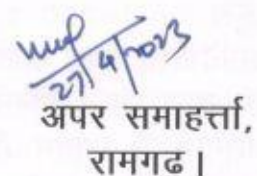 27/4/2023
अपर समाहर्त्ता,
रामगढ।